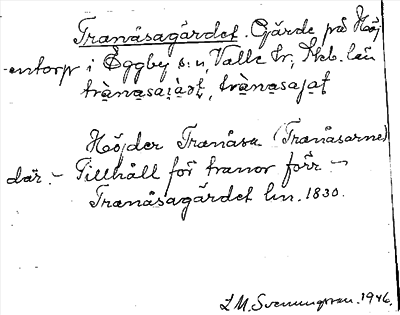 Tranåsagärdet. Gärde på Höj
-entorp i Eggby s:n, Valle hr, Skb. län
Höjder Tranåsa (Tranåsarne)
där. - Tillhåll för tranor förr -
Tranåsagärdet lm. 1830.
L M. Svenungsson. 1946.